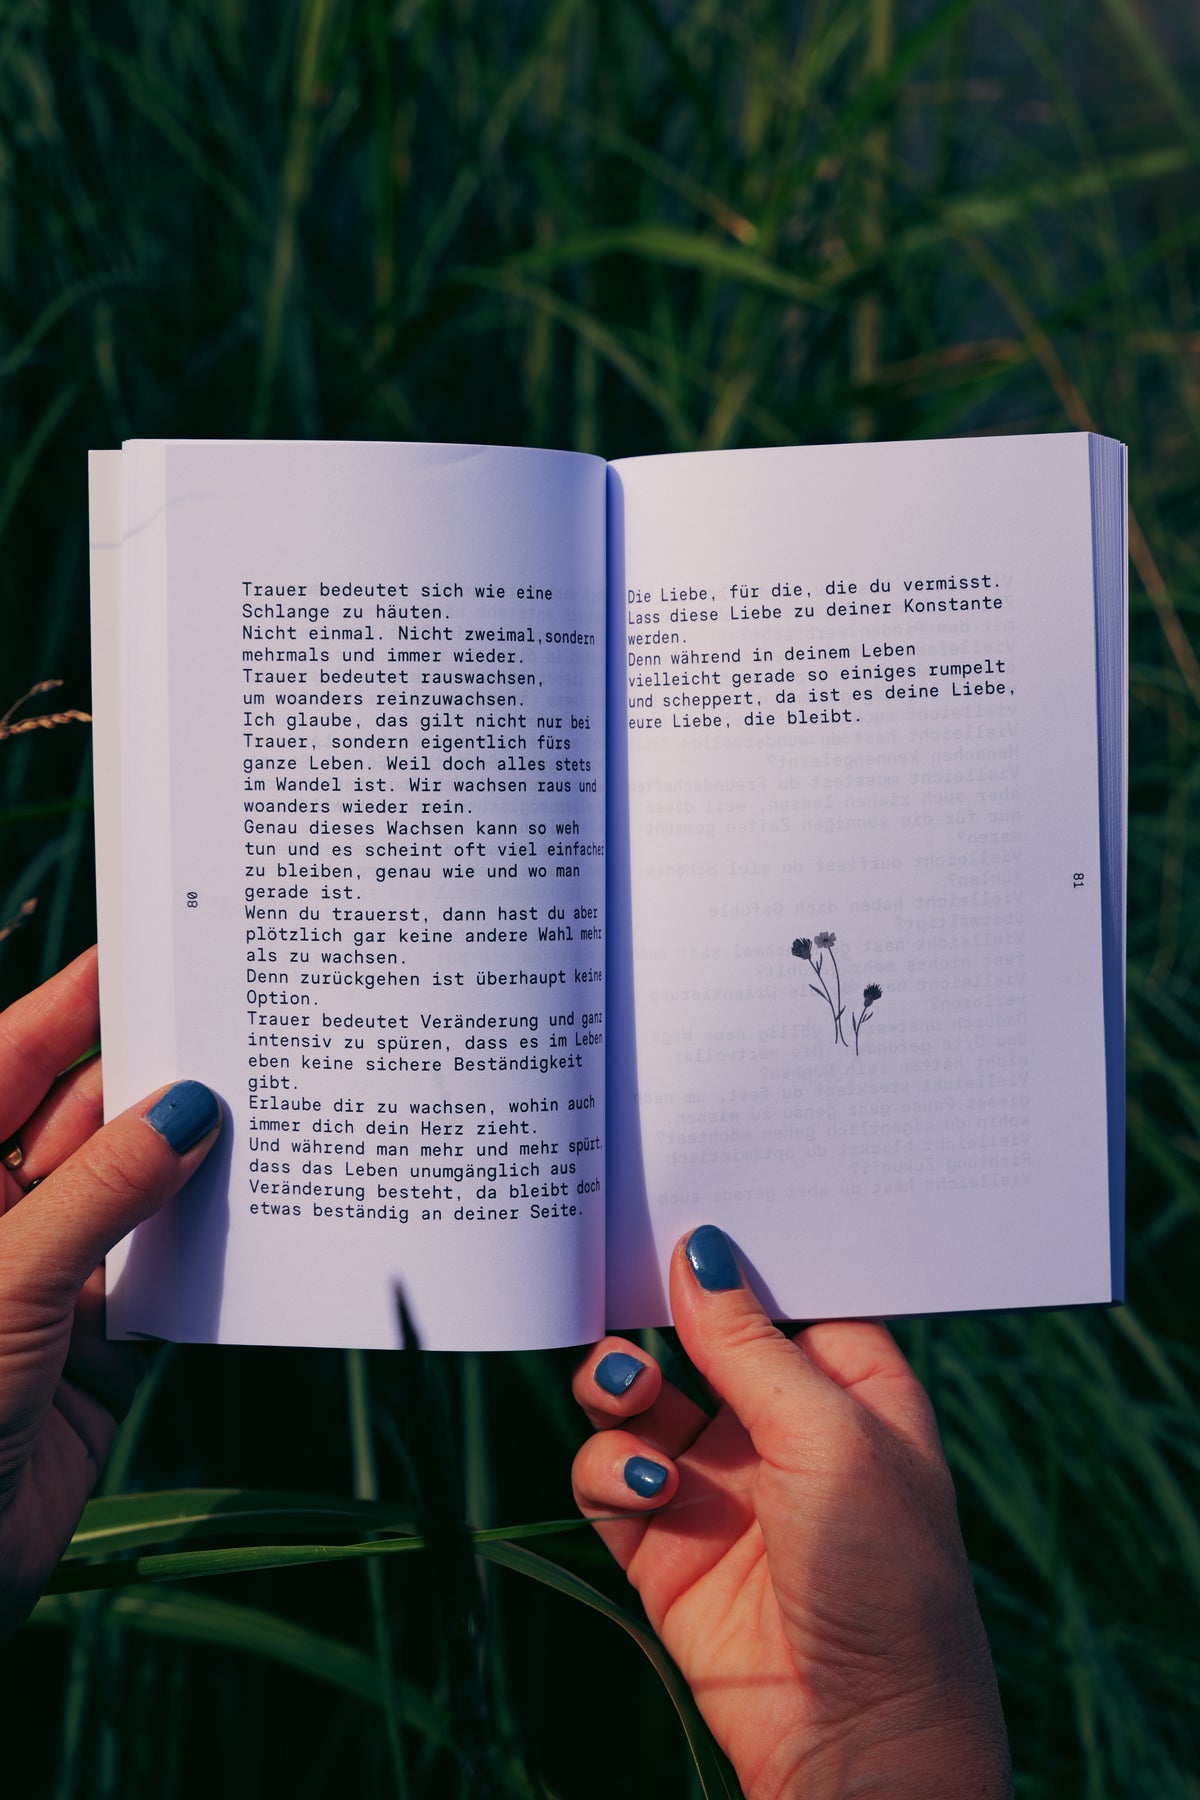 Trauer bedeutet sich wie eine
Schlange zu häuten.
Nicht einmal. Nicht zweimal,sondern
mehrmals und immer wieder.
Trauer bedeutet rauswachsen,
um woanders reinzuwachsen.
Ich glaube, das gilt nicht nur bei
Trauer, sondern eigentlich fürs
ganze Leben. Weil doch alles stets
im Wandel ist. Wir wachsen raus und
woanders wieder rein.
Genau dieses Wachsen kann so weh
tun und es scheint oft viel einfacher
zu bleiben, genau wie und wo man
gerade ist.
Wenn du trauerst, dann hast du aber
plötzlich gar keine andere Wahl mehr
als zu wachsen.
Denn zurückgehen ist überhaupt keine
Option.
Trauer bedeutet Veränderung und ganz
intensiv zu spüren, dass es im Leben
eben keine sichere Beständigkeit
gibt.
Erlaube dir zu wachsen, wohin auch
immer dich dein Herz zieht.
Und während man mehr und mehr spürt,
dass das Leben unumgänglich aus
Veränderung besteht, da bleibt doch
etwas beständig an deiner Seite.
80
Die Liebe, für die, die du vermisst.
Lass diese Liebe zu deiner Konstante
werden.
Denn während in deinem Leben
vielleicht gerade so einiges rumpelt
und scheppert, da ist es deine Liebe,
eure Liebe, die bleibt.
81